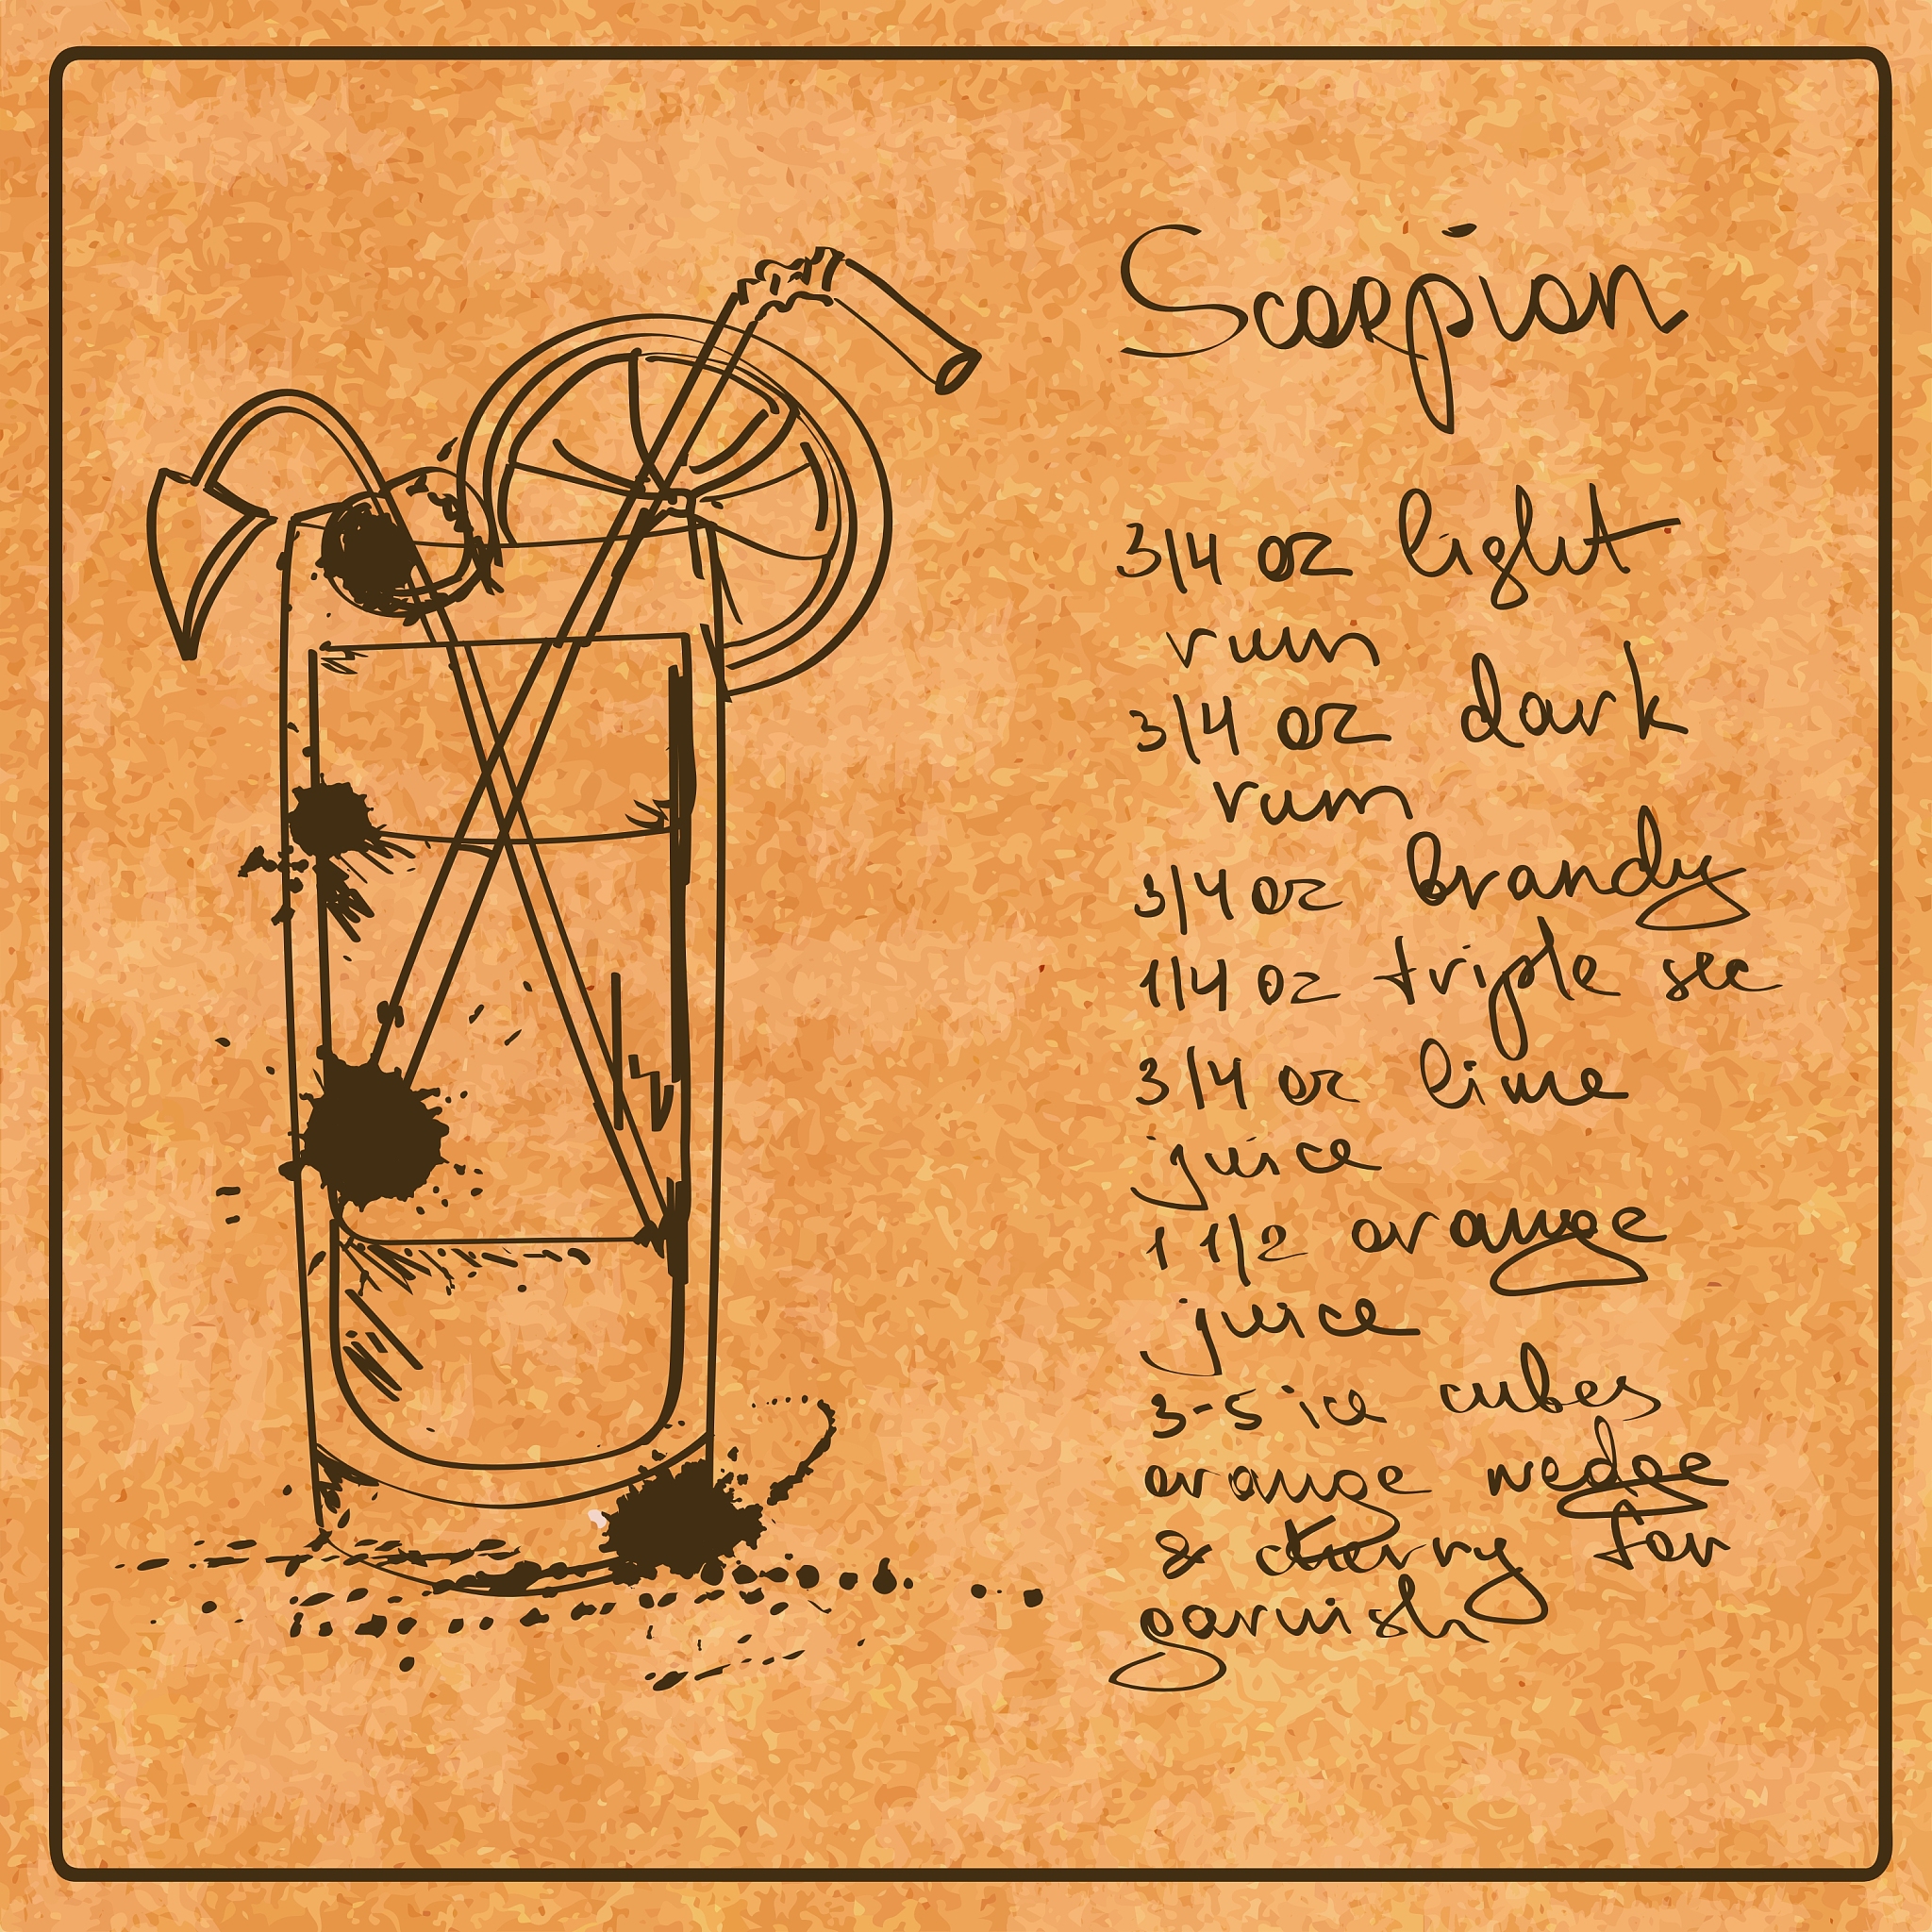 Scorpion
3/4 oz light
rum
3/4 oz dark
rum
3/4 oz brandy
1/4 oz triple sec
3/4 oz lime
juice
1 1/2 orange
juice
3-5 ice cubes
orange wedge
& cherry for
garnish